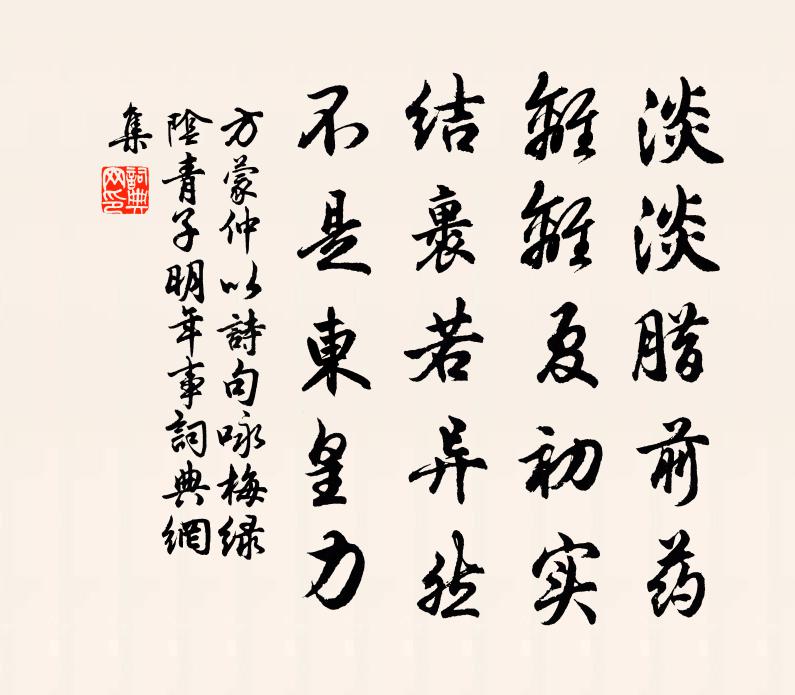 淡淡腊前药
離離夏初实
结裹若异然
不是東皇力
方蒙仲以詩句咏梅绿
陰青子明年事詞典網
集
詞典
网印